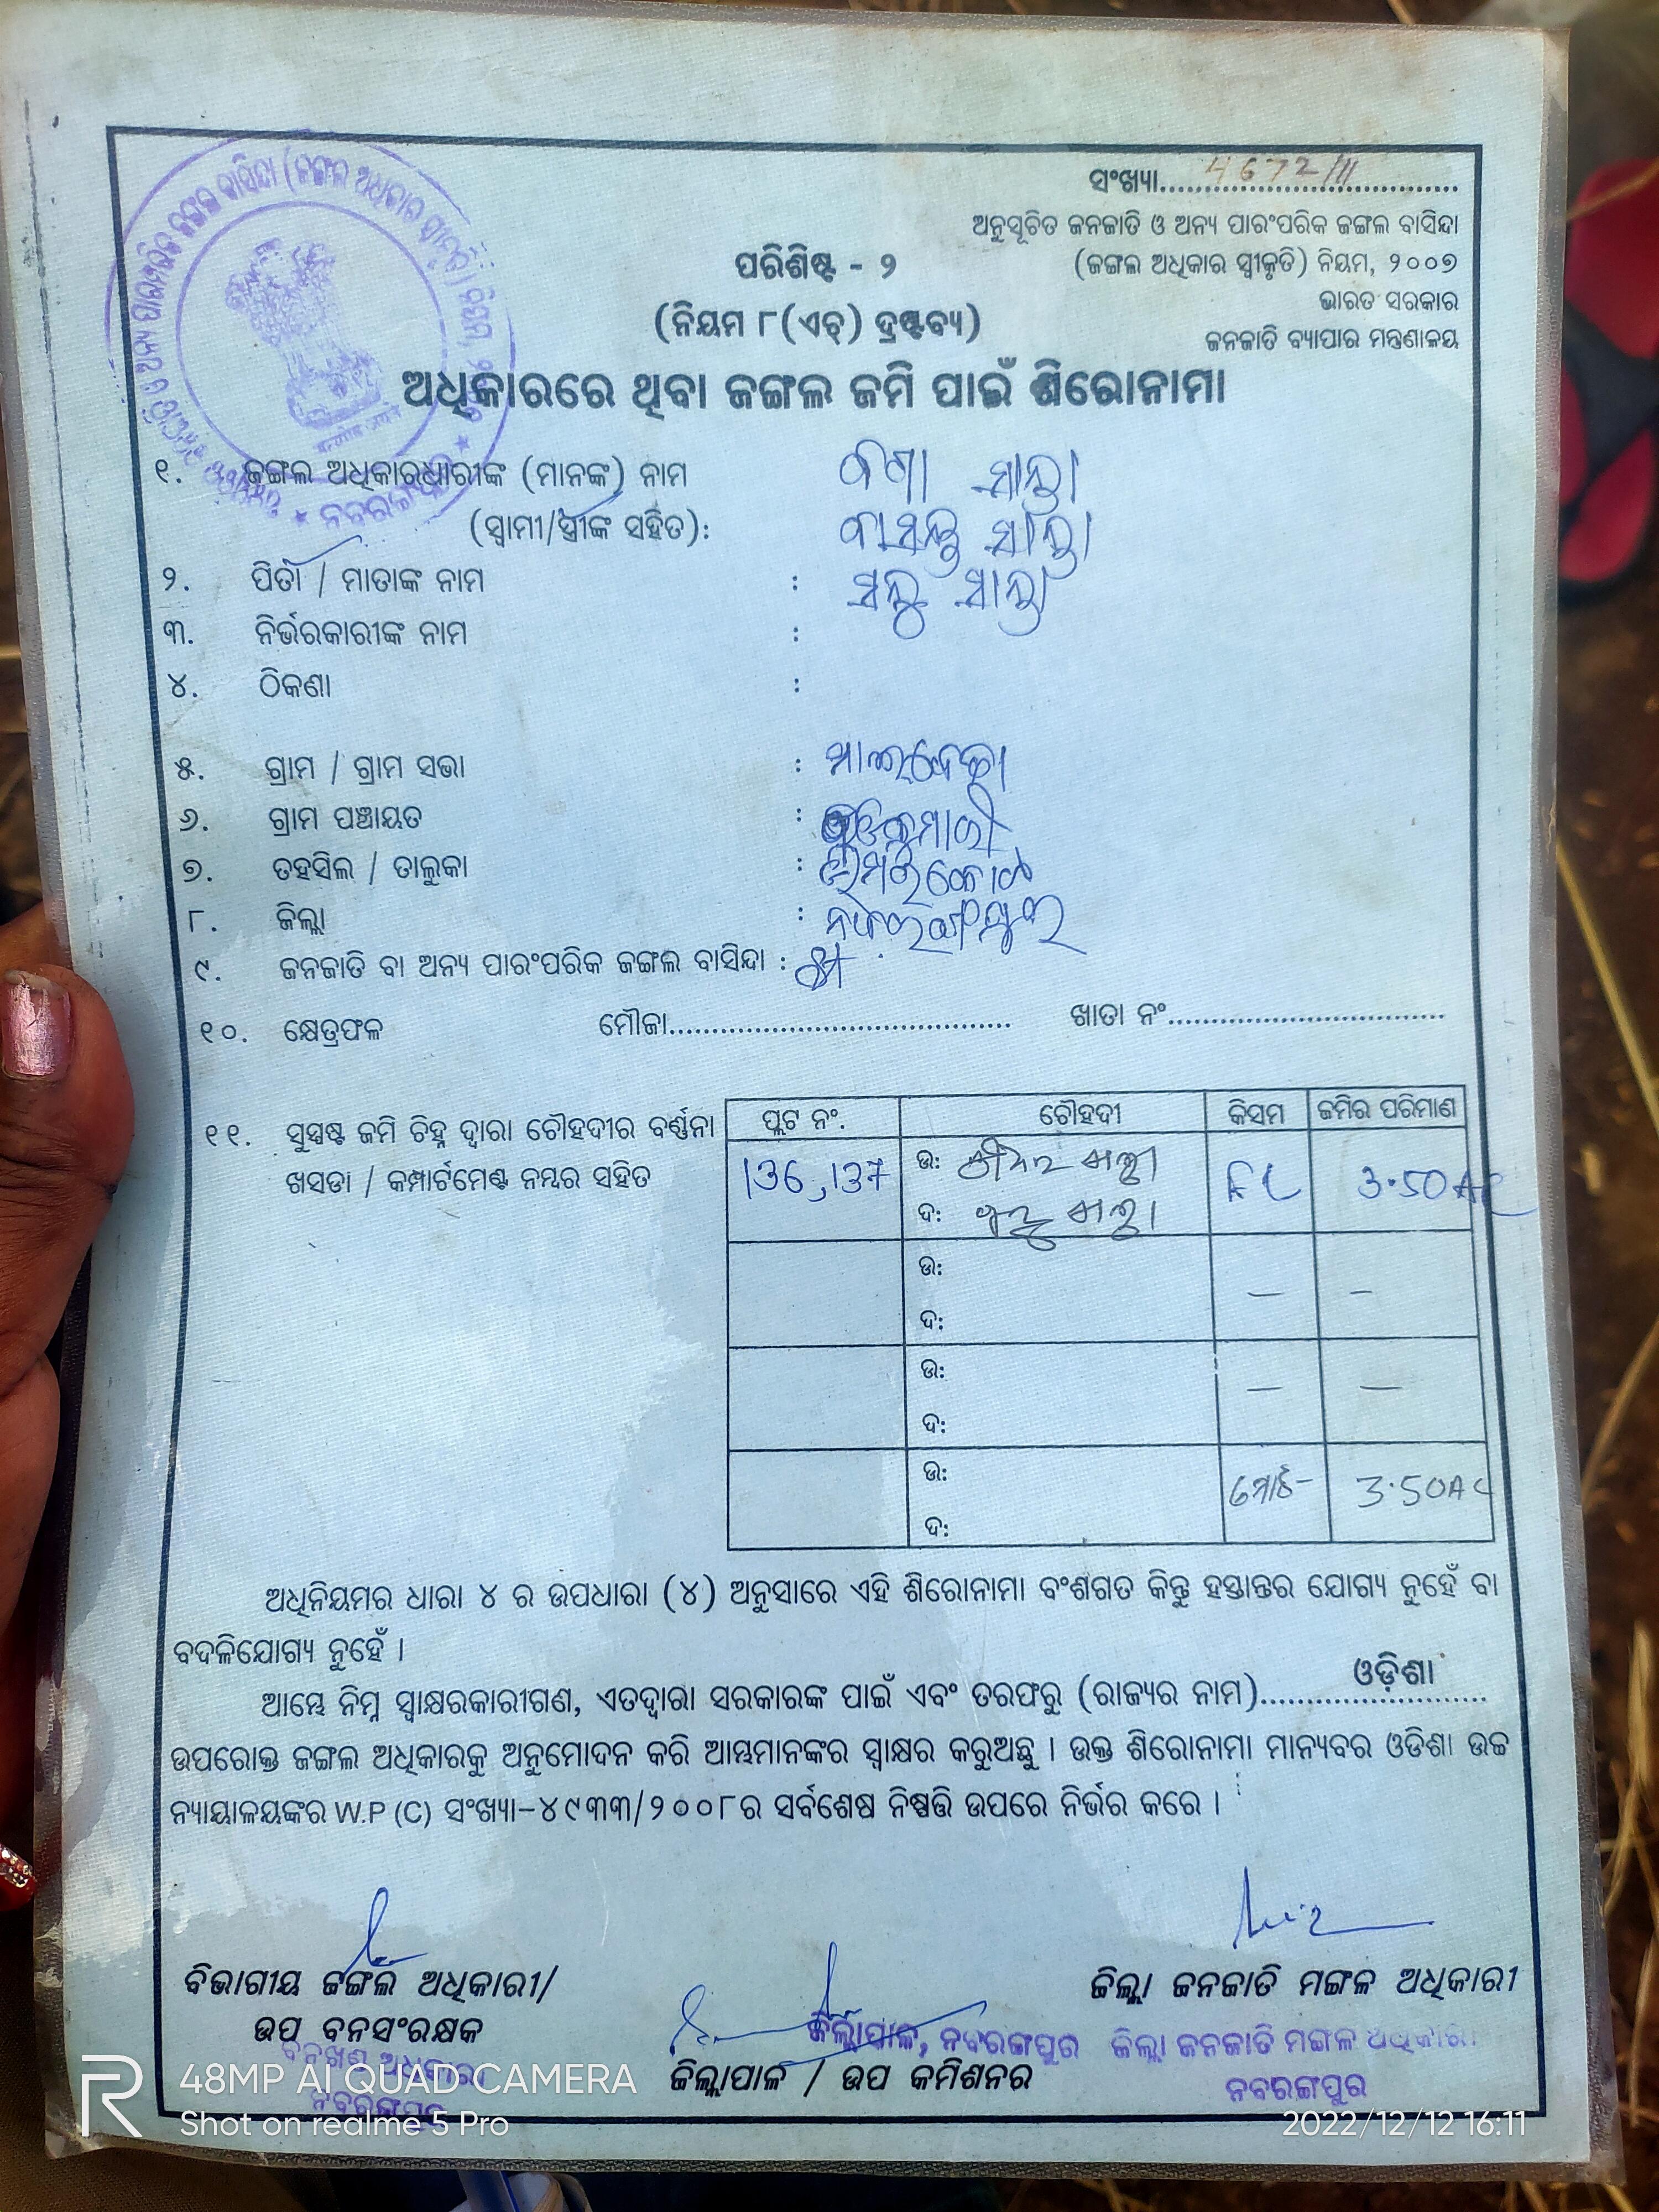 ସଂଖ୍ୟା.................................. 4672/111
ଅନୁସୂଚିତ ଜନଜାତି ଓ ଅନ୍ୟ ପାରଂପରିକ ଜଙ୍ଗଲ ବାସିନ୍ଦା
(ଜଙ୍ଗଲ ଅଧିକାର ସ୍ୱୀକୃତି) ନିୟମ, ୨୦୦୭
ଭାରତ ସରକାର
ଜନଜାତି ବ୍ୟାପାର ମନ୍ତ୍ରଣାଳୟ
ପରିଶିଷ୍ଟ - ୨
(ନିୟମ ୮(ଏଚ୍) ଦ୍ରଷ୍ଟବ୍ୟ)
ଅଧିକାରରେ ଥିବା ଜଙ୍ଗଲ ଜମି ପାଇଁ ଶିରୋନାମା
୧. ଜଙ୍ଗଲ ଅଧିକାରଧାରୀଙ୍କ (ମାନଙ୍କ) ନାମ
(ସ୍ୱାମୀ/ସ୍ତ୍ରୀଙ୍କ ସହିତ):
୨. ପିତା / ମାତାଙ୍କ ନାମ :
୩. ନିର୍ଭରକାରୀଙ୍କ ନାମ :
୪. ଠିକଣା :
୫. ଗ୍ରାମ / ଗ୍ରାମ ସଭା :
୬. ଗ୍ରାମ ପଞ୍ଚାୟତ :
୭. ତହସିଲ / ତାଲୁକା : ଉମରକୋଟ
୮. ଜିଲ୍ଲା : ନବରଙ୍ଗପୁର
୯. ଜନଜାତି ବା ଅନ୍ୟ ପାରଂପରିକ ଜଙ୍ଗଲ ବାସିନ୍ଦା :
୧୦. କ୍ଷେତ୍ରଫଳ ମୌଜା...................................... ଖାତା ନଂ..................................
୧୧. ସୁସ୍ପଷ୍ଟ ଜମି ଚିହ୍ନ ଦ୍ୱାରା ଚୌହଦୀର ବର୍ଣ୍ଣନା
ଖସଡା / କମ୍ପାର୍ଟମେଣ୍ଟ ନମ୍ବର ସହିତ
ପ୍ଲଟ ନଂ. ଚୌହଦୀ କିସମ ଜମିର ପରିମାଣ
136,137 ଉ: FL 3.50 AC
ଦ:
ଉ: — —
ଦ:
ଉ: — —
ଦ:
ଉ: ମୋଟ- 3.50 AC
ଦ:
ଅଧିନିୟମର ଧାରା ୪ ର ଉପଧାରା (୪) ଅନୁସାରେ ଏହି ଶିରୋନାମା ବଂଶଗତ କିନ୍ତୁ ହସ୍ତାନ୍ତର ଯୋଗ୍ୟ ନୁହେଁ ବା
ବଦଳିଯୋଗ୍ୟ ନୁହେଁ ।
ଆମ୍ଭେ ନିମ୍ନ ସ୍ୱାକ୍ଷରକାରୀଗଣ, ଏତଦ୍ୱାରା ସରକାରଙ୍କ ପାଇଁ ଏବଂ ତରଫରୁ (ରାଜ୍ୟର ନାମ)......ଓଡ଼ିଶା......
ଉପରୋକ୍ତ ଜଙ୍ଗଲ ଅଧିକାରକୁ ଅନୁମୋଦନ କରି ଆମ୍ଭମାନଙ୍କର ସ୍ୱାକ୍ଷର କରୁଅଛୁ । ଉକ୍ତ ଶିରୋନାମା ମାନ୍ୟବର ଓଡିଶା ଉଚ୍ଚ
ନ୍ୟାୟାଳୟଙ୍କର W.P (C) ସଂଖ୍ୟା-୪୯୩୩/୨୦୦୮ର ସର୍ବଶେଷ ନିଷ୍ପତ୍ତି ଉପରେ ନିର୍ଭର କରେ ।
ବିଭାଗୀୟ ଜଙ୍ଗଲ ଅଧିକାରୀ/
ଉପ ବନସଂରକ୍ଷକ
ବନଖଣ୍ଡ ଅଧିକାରୀ
ନବରଙ୍ଗପୁର
ଜିଲ୍ଲାପାଳ, ନବରଙ୍ଗପୁର
ଜିଲ୍ଲାପାଳ / ଉପ କମିଶନର
ଜିଲ୍ଲା ଜନଜାତି ମଙ୍ଗଳ ଅଧିକାରୀ
ଜିଲ୍ଲା ଜନଜାତି ମଙ୍ଗଳ ଅଧିକାରୀ
ନବରଙ୍ଗପୁର
48MP AI QUAD CAMERA
Shot on realme 5 Pro
2022/12/12 16:11